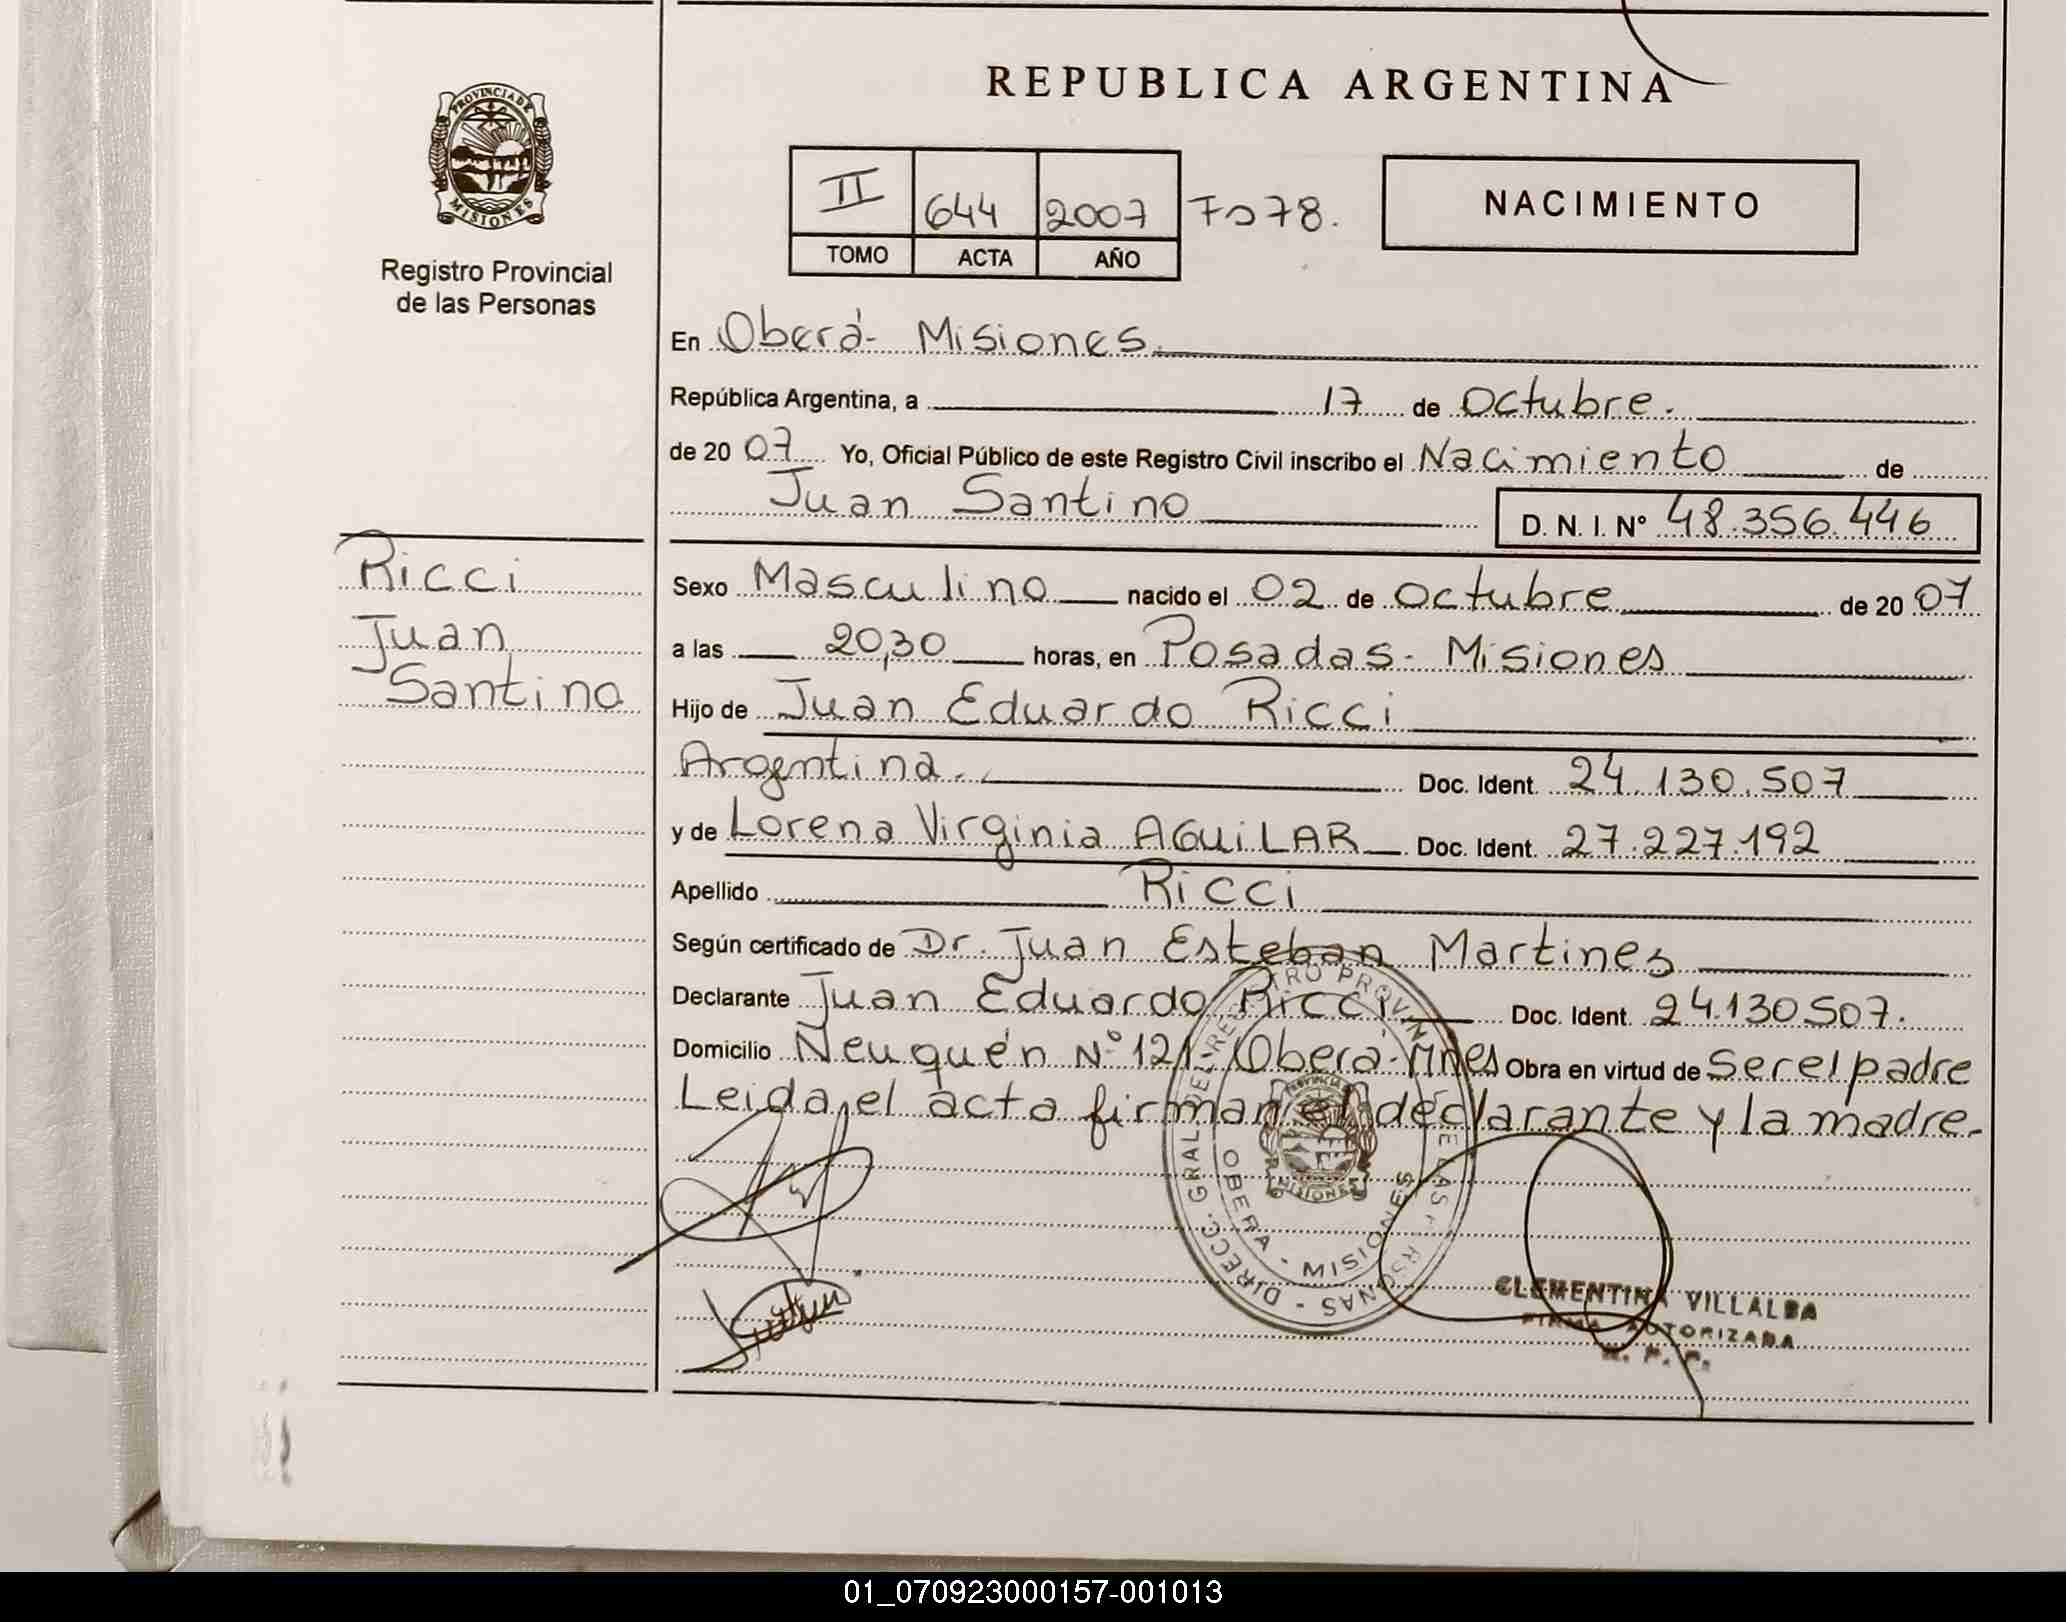 REPUBLICA ARGENTINA
PROVINCIA DE
MISIONES
Registro Provincial
de las Personas
II 644 2007 Fo 78.
TOMO ACTA AÑO
NACIMIENTO
En Oberá- Misiones.
República Argentina, a 17 de Octubre.
de 2007 Yo, Oficial Público de este Registro Civil inscribo el Nacimiento de
Juan Santino D. N. I. Nº 48.356.446
Ricci
Juan
Santino
Sexo Masculino nacido el 02 de Octubre de 2007
a las 20,30 horas, en Posadas- Misiones
Hijo de Juan Eduardo Ricci
Argentina. Doc. Ident. 24.130.507
y de Lorena Virginia AGUiLAR Doc. Ident. 27.227.192
Apellido Ricci
Según certificado de Dr. Juan Esteban Martines
Declarante Juan Eduardo Ricci Doc. Ident. 24.130507.
Domicilio Neuquén Nº 121- Oberá- Mnes Obra en virtud de Ser el padre
Leida el acta firman el declarante y la madre.
DIRECC. GRAL. DEL REGISTRO PROVIN DE LAS PERSONAS
OBERA - MISIONES
PROVINCIA DE
MISIONES
CLEMENTINA VILLALBA
FIRMA AUTORIZADA
R. P. P.
01_070923000157-001013